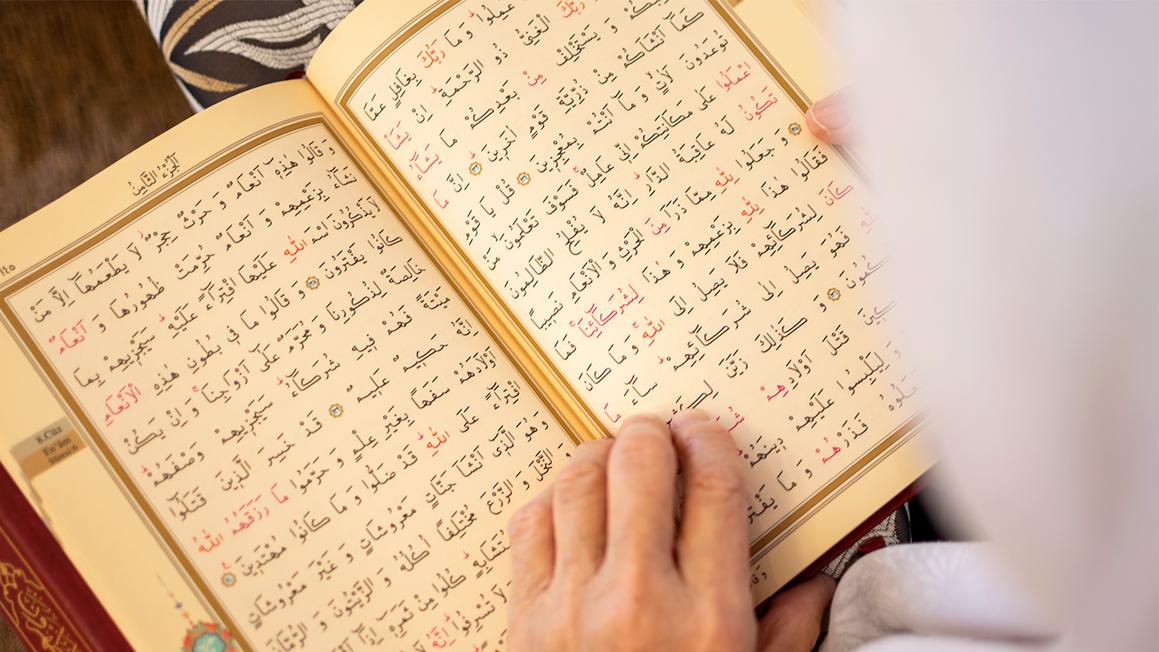 عَمِلُوا وَمَا رَبُّكَ بِغَافِلٍ عَمَّا
رَبُّكَ الْغَنِيُّ ذُو الرَّحْمَةِ اِنْ يَشَأْ
وَيَسْتَخْلِفْ مِنْ بَعْدِكُمْ مَا يَشَاءُ
كَمَا اَنْشَاَكُمْ مِنْ ذُرِّيَّةِ قَوْمٍ اٰخَرِينَ ﴿١٣٣﴾ اِنَّ مَا
تُوعَدُونَ لَاٰتٍ وَمَا اَنْتُمْ بِمُعْجِزِينَ ﴿١٣٤﴾ قُلْ يَا قَوْمِ
اعْمَلُوا عَلٰى مَكَانَتِكُمْ اِنِّي عَامِلٌ فَسَوْفَ تَعْلَمُونَ مَنْ
تَكُونُ لَهُ عَاقِبَةُ الدَّارِ اِنَّهُ لَا يُفْلِحُ الظَّالِمُونَ
﴿١٣٥﴾ وَجَعَلُوا لِلّٰهِ مِمَّا ذَرَاَ مِنَ الْحَرْثِ وَالْاَنْعَامِ نَصِيبًا
فَقَالُوا هٰذَا لِلّٰهِ بِزَعْمِهِمْ وَهٰذَا لِشُرَكَائِنَا فَمَا
كَانَ لِشُرَكَائِهِمْ فَلَا يَصِلُ اِلَى اللّٰهِ وَمَا كَانَ
لِلّٰهِ فَهُوَ يَصِلُ اِلٰى شُرَكَائِهِمْ سَاءَ مَا
﴿١٣٦﴾ وَكَذٰلِكَ زَيَّنَ
قَتْلَ اَوْلَادِهِمْ
وَلِيَلْبِسُوا عَلَيْهِمْ دِينَهُمْ
فَذَرْهُمْ وَمَا
الْجُزْءُ الثَّامِنُ
١٤٥
وَقَالُوا هٰذِهِ اَنْعَامٌ وَحَرْثٌ حِجْرٌ لَا يَطْعَمُهَا اِلَّا مَنْ
نَشَاءُ بِزَعْمِهِمْ وَاَنْعَامٌ حُرِّمَتْ ظُهُورُهَا وَاَنْعَامٌ
لَا يَذْكُرُونَ اسْمَ اللّٰهِ عَلَيْهَا افْتِرَاءً عَلَيْهِ سَيَجْزِيهِمْ بِمَا
كَانُوا يَفْتَرُونَ ﴿١٣٨﴾ وَقَالُوا مَا فِي بُطُونِ هٰذِهِ الْاَنْعَامِ
خَالِصَةٌ لِذُكُورِنَا وَمُحَرَّمٌ عَلٰى اَزْوَاجِنَا وَاِنْ يَكُنْ
مَيْتَةً فَهُمْ فِيهِ شُرَكَاءُ سَيَجْزِيهِمْ وَصْفَهُمْ
اِنَّهُ حَكِيمٌ عَلِيمٌ ﴿١٣٩﴾ قَدْ خَسِرَ الَّذِينَ قَتَلُوا
اَوْلَادَهُمْ سَفَهًا بِغَيْرِ عِلْمٍ وَحَرَّمُوا مَا رَزَقَهُمُ اللّٰهُ
افْتِرَاءً عَلَى اللّٰهِ قَدْ ضَلُّوا وَمَا كَانُوا مُهْتَدِينَ ﴿١٤٠﴾
وَهُوَ الَّذِي اَنْشَاَ جَنَّاتٍ مَعْرُوشَاتٍ وَغَيْرَ مَعْرُوشَاتٍ
وَالنَّخْلَ وَالزَّرْعَ مُخْتَلِفًا اُكُلُهُ وَالزَّيْتُونَ وَالرُّمَّانَ
مُتَشَابِهٍ كُلُوا مِنْ ثَمَرِهِ اِذَا
لَا تُسْرِفُوا اِنَّهُ
8.Cüz
En'âm
Sûresi 6